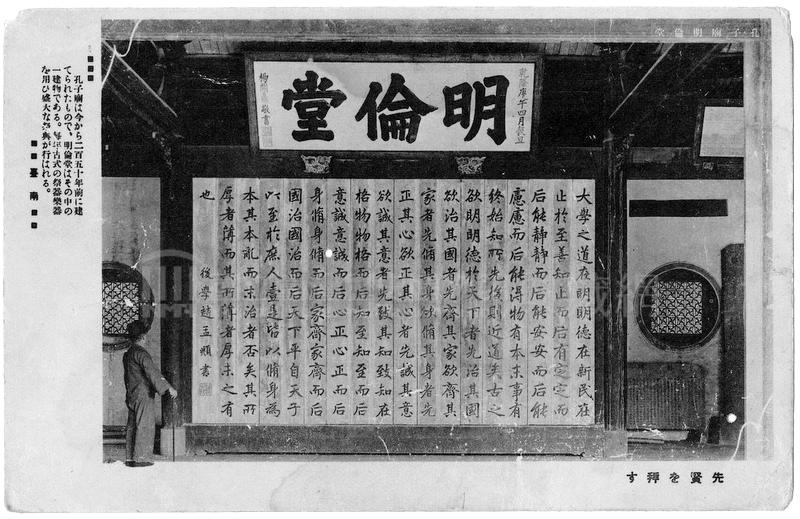 孔子廟明倫堂
乾隆庚午四月穀旦
明倫堂
敬書
大學之道在明明德在新民在
止於至善知止而后有定定而
后能靜靜而后能安安而后能
慮慮而后能得物有本末事有
終始知所先後則近道矣古之
欲明明德於天下者先治其國
欲治其國者先齊其家欲齊其
家者先脩其身欲脩其身者先
正其心欲正其心者先誠其意
欲誠其意者先致其知致知在
格物物格而后知至知至而后
意誠意誠而后心正心正而后
身脩身脩而后家齊家齊而后
國治國治而后天下平自天子
以至於庶人壹是皆以脩身為
本其本亂而末治者否矣其所
厚者薄而其所薄者厚未之有
也
後學趙孟頫書
孔子廟は今から二百五十年前に建
てられたもので、明倫堂はその中の
一建物である。毎年古式の祭器樂器
を用ひ盛大な祭典が行はれる。
臺南
先賢を拜す